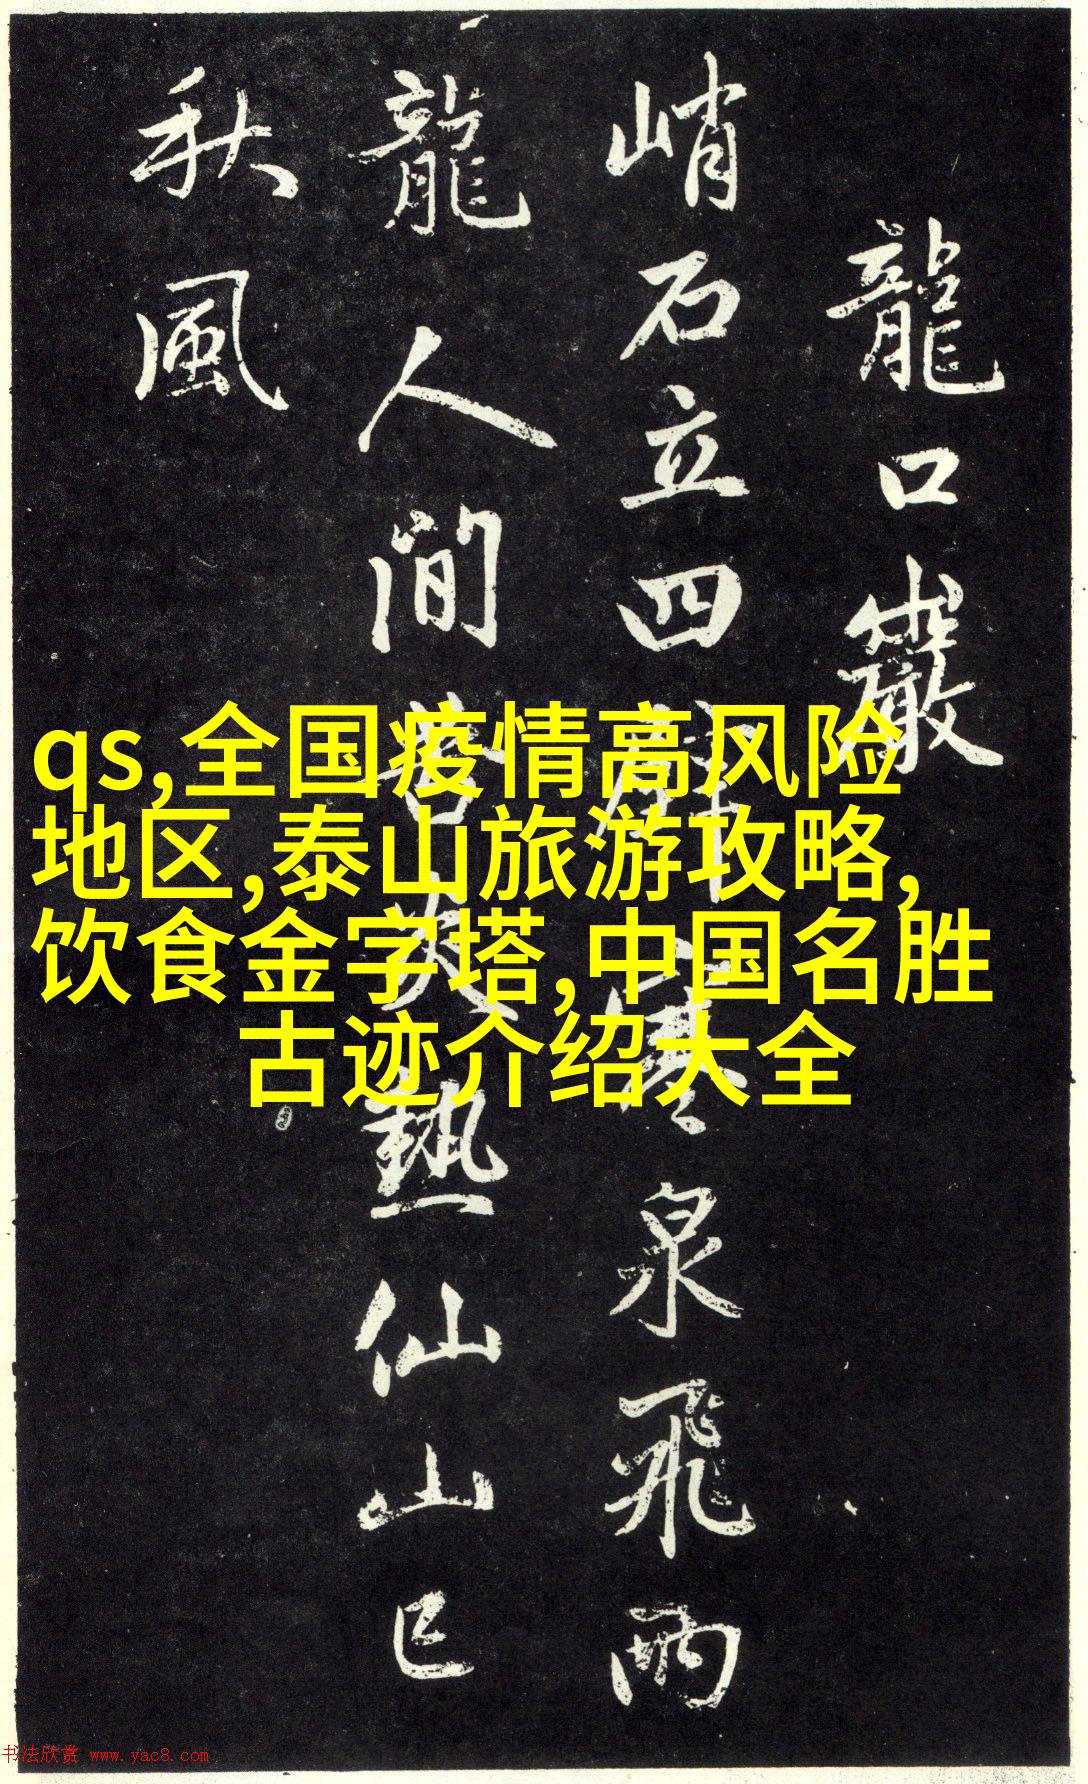 龍口巖
峭石立四壁寒泉飛兩
龍人間苦炎熱仙山已
秋風
qs,全国疫情高风险
地区,泰山旅游攻略,
饮食金字塔,中国名胜
古迹介绍大全
书法欣赏 www.yac8.com